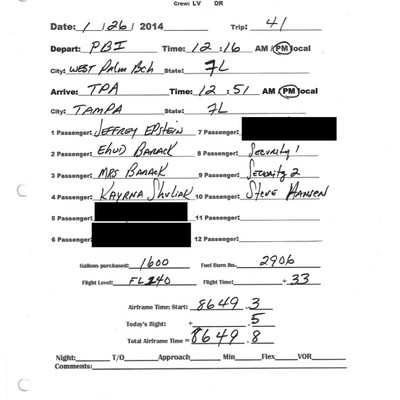 Crew: LV DR
Date: 1 / 26 / 2014 Trip: 41
Depart: PBI Time: 12 : 16 AM / PM local
City: WEST Palm Bch State: FL
Arrive: TPA Time: 12 : 51 AM / PM local
City: TAMPA State: FL
1 Passenger: JEFFREY EPSTEIN 7 Passenger:
2 Passenger: EHUD BARACK 8 Passenger: SECURITY 1
3 Passenger: MRS BARACK 9 Passenger: SECURITY 2
4 Passenger: KAYRNA SHULIAK 10 Passenger: STEVE HANSEN
5 Passenger: 11 Passenger:
6 Passenger: 12 Passenger:
Gallons purchased: 1600 Fuel Burn lbs. 2906
Flight Level: FL240 Flight Time: 33
Airframe Time: Start: 8649 . 3
Today's flight: + . 5
Total Airframe Time = 8649 . 8
Night: T/O Approach Min Flex VOR
Comments: